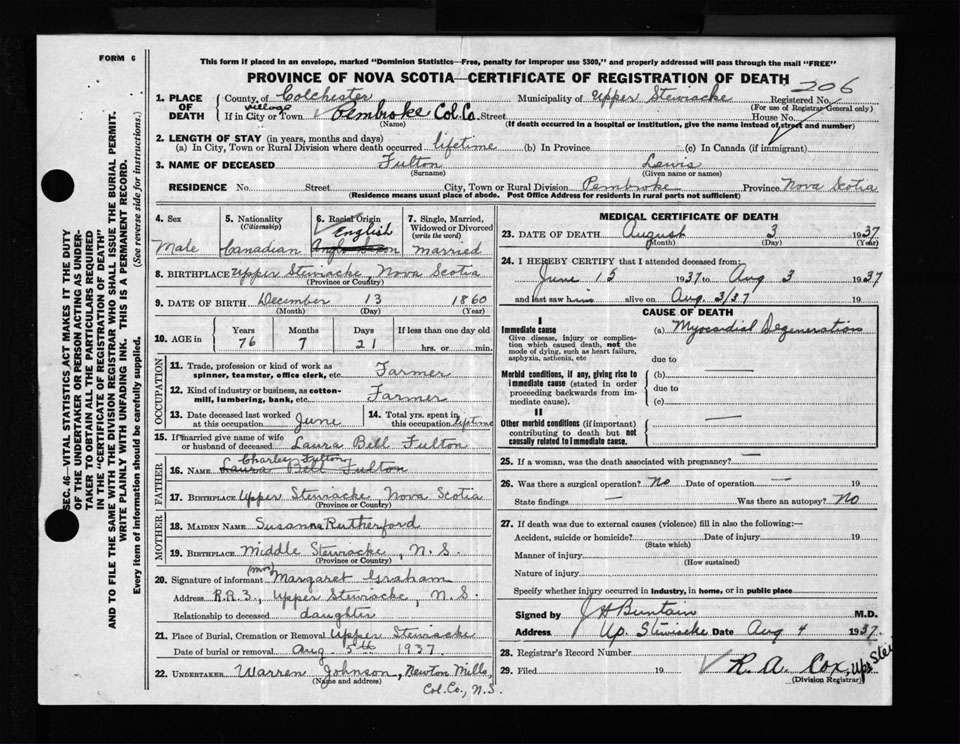 FORM 6
This form if placed in an envelope, marked "Dominion Statistics—Free, penalty for improper use $300," and properly addressed will pass through the mail "FREE"
PROVINCE OF NOVA SCOTIA—CERTIFICATE OF REGISTRATION OF DEATH
206
1. PLACE OF DEATH
County of Colchester Municipality of Upper Stewiacke Registered No.
(For use of Registrar General only)
village
If in City or Town Pembroke Col. Co. Street House No.
(Name) (If death occurred in a hospital or institution, give the name instead of street and number)
2. LENGTH OF STAY (in years, months and days)
(a) In City, Town or Rural Division where death occurred lifetime (b) In Province (c) In Canada (if immigrant)
3. NAME OF DECEASED Fulton Lewis
(Surname) (Given name or names)
RESIDENCE No. Street City, Town or Rural Division Pembroke Province Nova Scotia
(Residence means usual place of abode. Post Office Address for residents in rural parts not sufficient)
4. Sex
Male
5. Nationality
(Citizenship)
Canadian
6. Racial Origin
English
Anglo Saxon
7. Single, Married, Widowed or Divorced
(write the word)
married
8. BIRTHPLACE Upper Stewiacke, Nova Scotia
(Province or Country)
9. DATE OF BIRTH December 13 1860
(Month) (Day) (Year)
10. AGE in
Years Months Days If less than one day old
76 7 21 hrs. or min.
OCCUPATION
11. Trade, profession or kind of work as
spinner, teamster, office clerk, etc. Farmer
12. Kind of industry or business, as cotton-
mill, lumbering, bank, etc. Farmer
13. Date deceased last worked
at this occupation June
14. Total yrs. spent in
this occupation lifetime
15. If married give name of wife
or husband of deceased Laura Bell Fulton
FATHER
Charley Fulton
16. NAME Laura Bell Fulton
17. BIRTHPLACE Upper Stewiacke, Nova Scotia
(Province or Country)
MOTHER
18. MAIDEN NAME Susanna Rutherford
19. BIRTHPLACE Middle Stewiacke, N. S.
(Province or Country)
20. Signature of informant (Mrs) Margaret Graham
Address R.R.3., Upper Stewiacke, N. S.
Relationship to deceased daughter
21. Place of Burial, Cremation or Removal Upper Stewiacke
Date of burial or removal Aug. 5th 1937.
22. UNDERTAKER Warren Johnson, Newton Mills,
(Name and address) Col. Co., N. S.
MEDICAL CERTIFICATE OF DEATH
23. DATE OF DEATH August 3 1937
(Month) (Day) (Year)
24. I HEREBY CERTIFY that I attended deceased from:
June 15 1937 to Aug 3 1937
and last saw him alive on Aug. 3/37 19
CAUSE OF DEATH
I
Immediate cause (a) Myocardial Degeneration
Give disease, injury or complica-
tion which caused death, not the
mode of dying, such as heart failure,
asphyxia, asthenia, etc
due to
Morbid conditions, if any, giving rise to (b)
immediate cause (stated in order
proceeding backwards from im-
mediate cause).
due to
(c)
II
Other morbid conditions (if important)
contributing to death but not
causally related to immediate cause.
25. If a woman, was the death associated with pregnancy? —
26. Was there a surgical operation? No Date of operation — 19
State findings — Was there an autopsy? No
27. If death was due to external causes (violence) fill in also the following:—
Accident, suicide or homicide? Date of injury 19
(State which)
Manner of injury
(How sustained)
Nature of injury
Specify whether injury occurred in Industry, in home, or in public place
Signed by J H Buntain M.D.
Address Up. Stewiacke Date Aug 4 1937.
28. Registrar's Record Number
29. Filed 19 R. A. Cox, Up. Stew
(Division Registrar)
SEC. 46—VITAL STATISTICS ACT MAKES IT THE DUTY
OF THE UNDERTAKER OR PERSON ACTING AS UNDER-
TAKER TO OBTAIN ALL THE PARTICULARS REQUIRED
IN THE "CERTIFICATE OF REGISTRATION OF DEATH"
AND TO FILE THE SAME WITH THE DIVISION REGISTRAR WHO SHALL ISSUE THE BURIAL PERMIT.
WRITE PLAINLY WITH UNFADING INK. THIS IS A PERMANENT RECORD.
Every item of information should be carefully supplied. (See reverse side for instructions.)